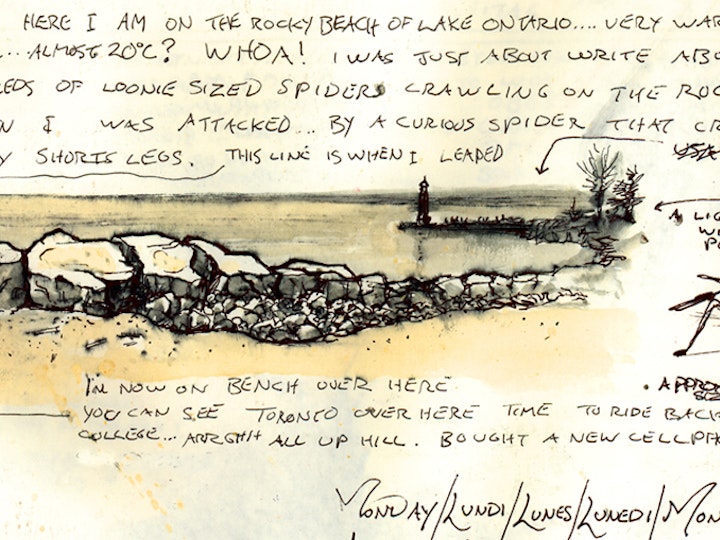 HERE I AM ON THE ROCKY BEACH OF LAKE ONTARIO.... VERY WAR
... ALMOST 20°C? WHOA! I WAS JUST ABOUT WRITE ABO
EDS OF LOONIE SIZED SPIDERS CRAWLING ON THE ROC
N I WAS ATTACKED... BY A CURIOUS SPIDER THAT CR
Y SHORTS LEGS. THIS LINE IS WHEN I LEAPED
A LIG
I'M NOW ON BENCH OVER HERE
YOU CAN SEE TORONTO OVER HERE TIME TO RIDE BACK
COLLEGE... ALL UP HILL. BOUGHT A NEW CELLPH
MONDAY/LUNDI/LUNES/LUNEDI/MON